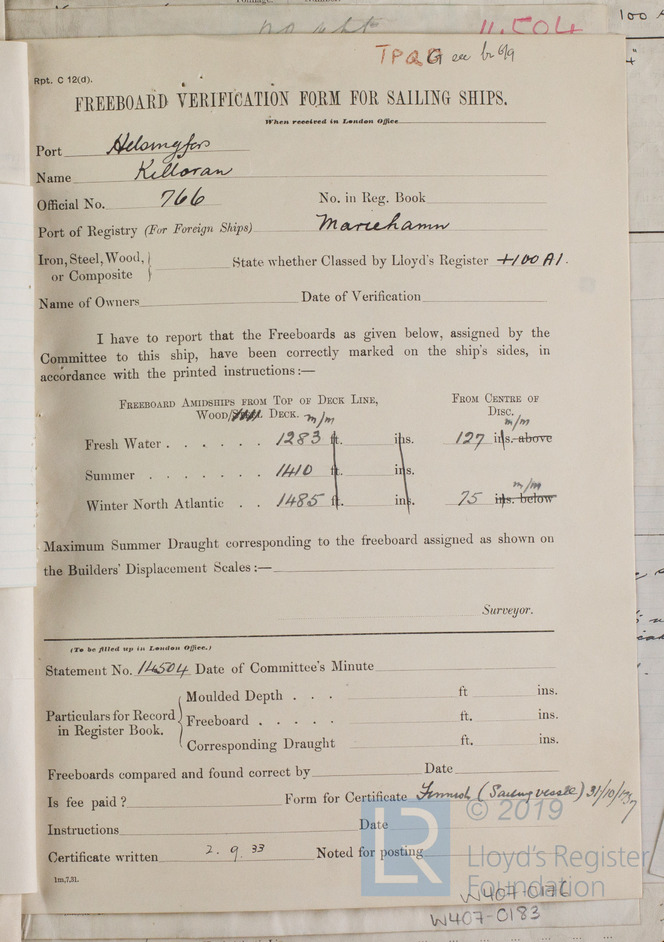 11,504
100 A
TPQG see br 6/9
Rpt. C 12(d).
FREEBOARD VERIFICATION FORM FOR SAILING SHIPS.
When received in London Office
Port Helsingfors
Name Killoran
Official No. 766 No. in Reg. Book
Port of Registry (For Foreign Ships) Mariehamn
Iron, Steel, Wood, or Composite State whether Classed by Lloyd's Register +100 A1.
Name of Owners Date of Verification
I have to report that the Freeboards as given below, assigned by the
Committee to this ship, have been correctly marked on the ship's sides, in
accordance with the printed instructions:—
FREEBOARD AMIDSHIPS FROM TOP OF DECK LINE, FROM CENTRE OF
WOOD/ DECK. DISC.
m/m m/m
Fresh Water . . . . . . 1283 ft. ins. 127 ins. above
Summer . . . . . . . 1410 ft. ins.
m/m
Winter North Atlantic . . 1485 ft. ins. 75 ins. below
Maximum Summer Draught corresponding to the freeboard assigned as shown on
the Builders' Displacement Scales:—
Surveyor.
(To be filled up in London Office.)
Statement No. 14504 Date of Committee's Minute
Particulars for Record in Register Book.
Moulded Depth . . . ft ins.
Freeboard . . . . . ft. ins.
Corresponding Draught ft. ins.
Freeboards compared and found correct by Date
Is fee paid ? Form for Certificate Finnish (Sailing vessel) 31/10/
Instructions Date
Certificate written 2. 9. 33 Noted for posting
1m,7,31.
LR
© 2019
Lloyd's Register
Foundation
W407-0176
W407-0183